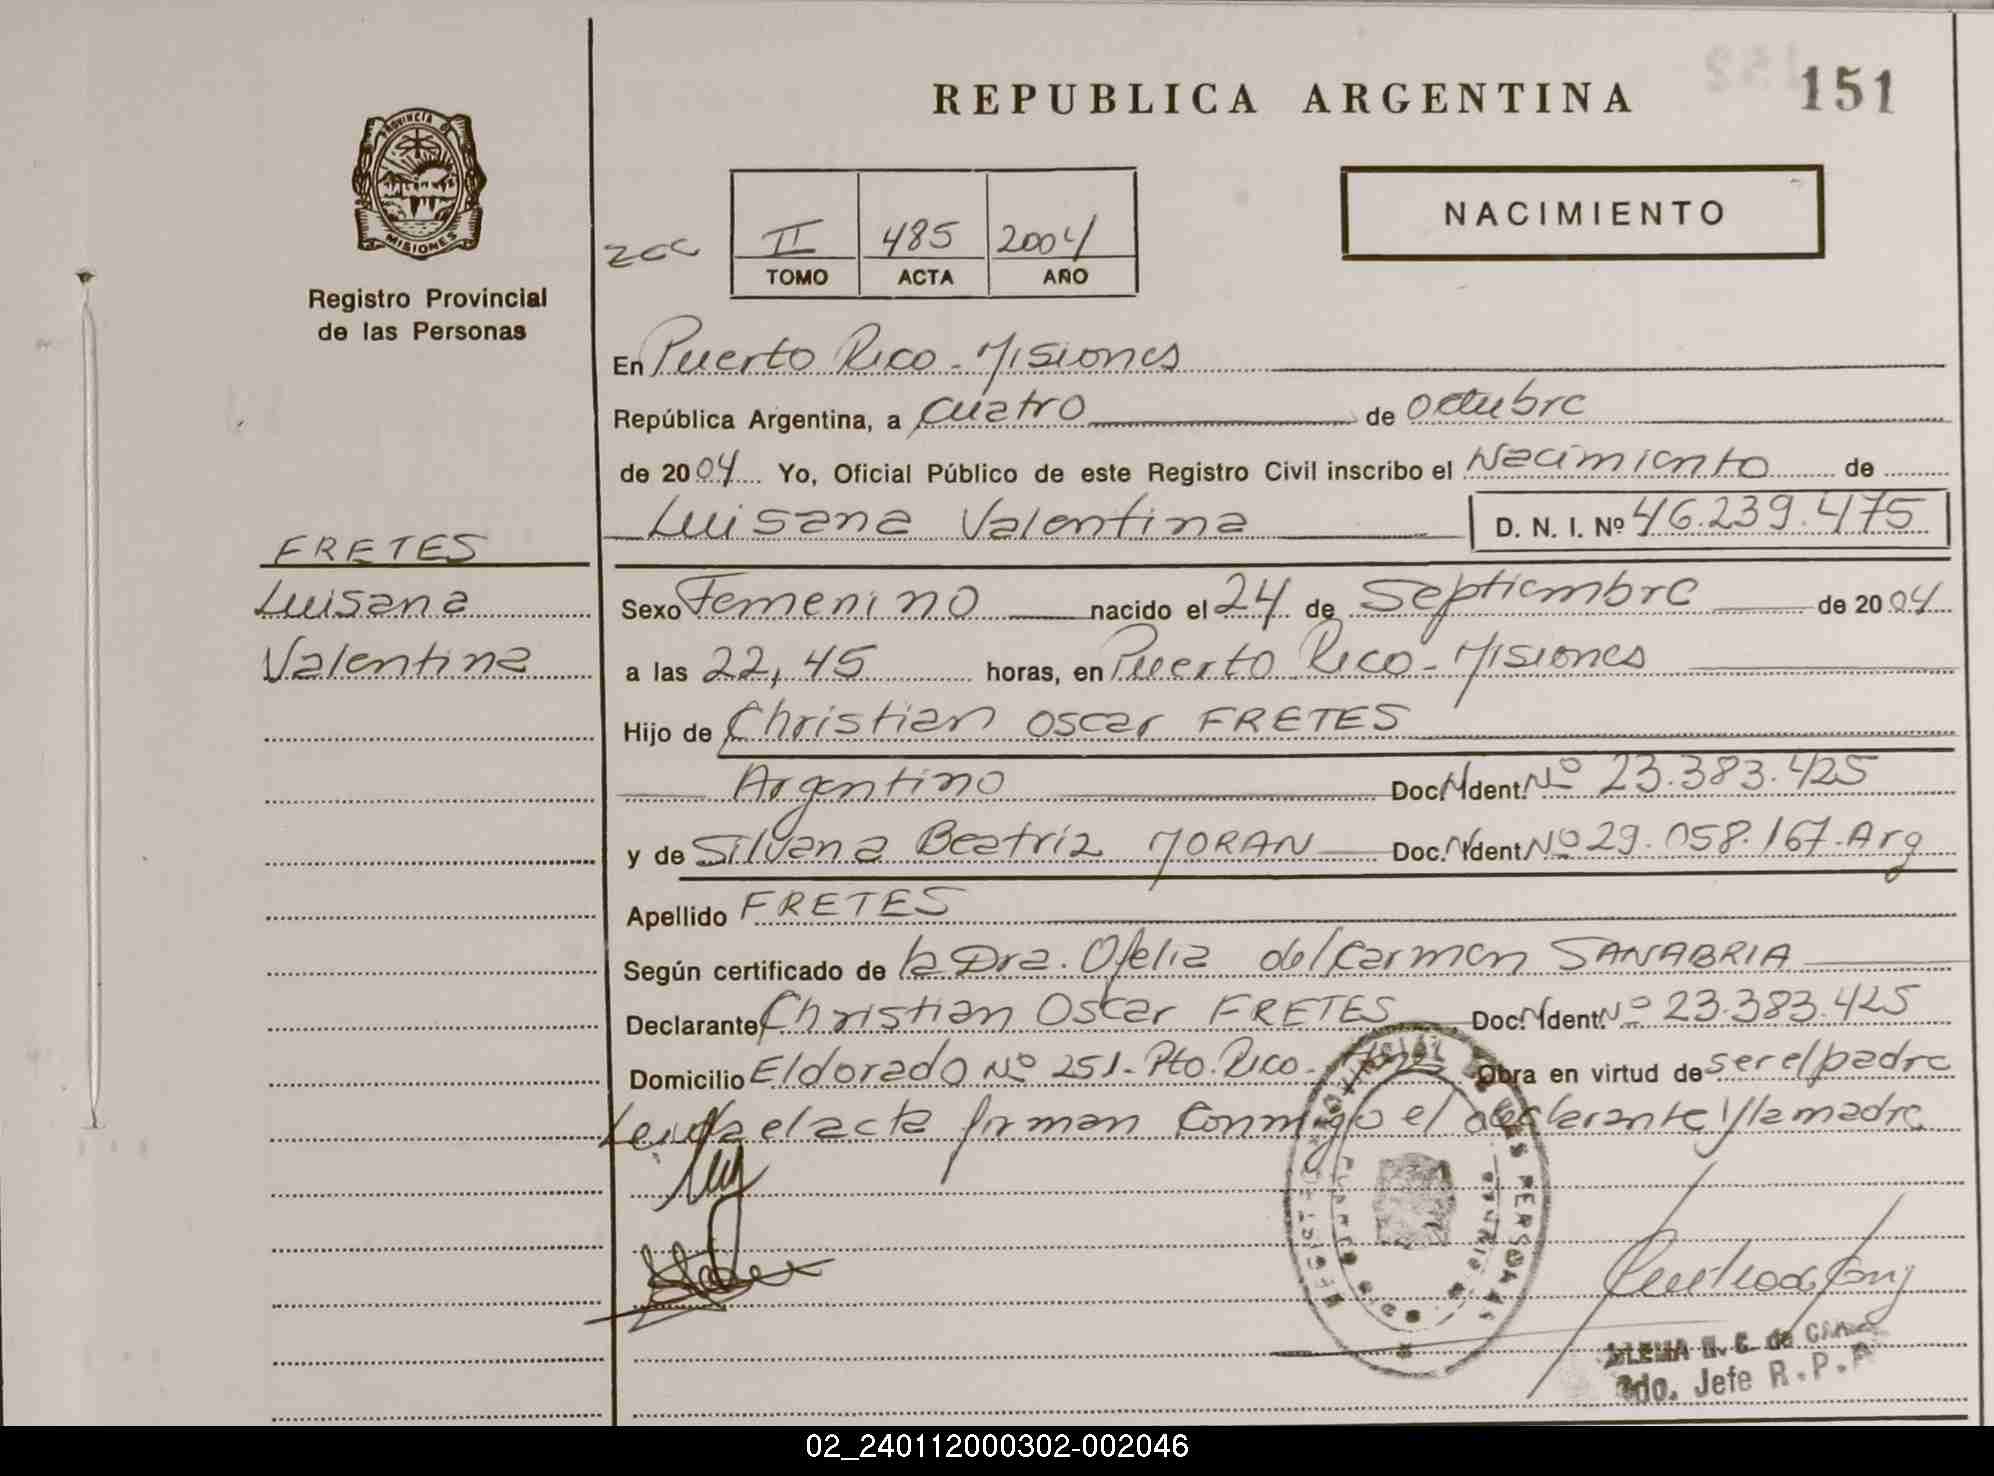 REPUBLICA ARGENTINA
151
PROVINCIA DE
MISIONES
Registro Provincial
de las Personas
NACIMIENTO
II 485 2004
TOMO ACTA AÑO
En Puerto Rico - Misiones
República Argentina, a cuatro de octubre
de 2004 Yo, Oficial Público de este Registro Civil inscribo el Nacimiento de
Luisana Valentina D. N. I. Nº 46.239.475
FRETES
Luisana
Valentina
Sexo Femenino nacido el 24 de Septiembre de 2004
a las 22,45 horas, en Puerto Rico - Misiones
Hijo de Christian Oscar FRETES
Argentino Doc. Ident. Nº 23.383.425
y de Silvana Beatriz MORAN Doc. Ident. Nº 29.058.167-Arg
Apellido FRETES
Según certificado de la Dra. Ofelia del Carmen SANABRIA
Declarante Christian Oscar FRETES Doc. Ident. Nº 23.383.425
Domicilio Eldorado Nº 251- Pto. Rico - Obra en virtud de ser el padre
Leida el acta firman conmigo el declarante y la madre
2do. Jefe R.P.P
02_240112000302-002046